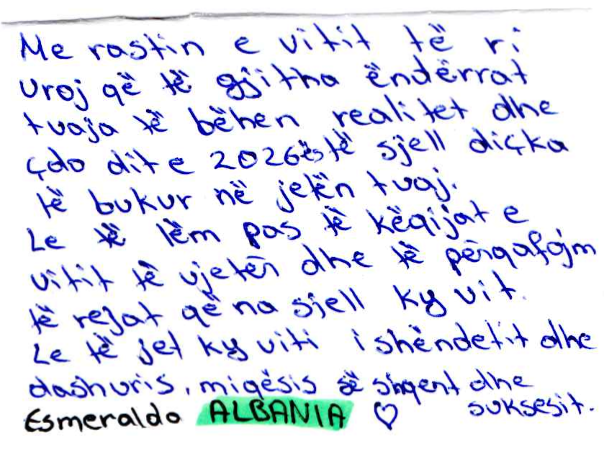 Me rastin e vitit të ri
uroj që të gjitha ëndërrat
tuaja të bëhen realitet dhe
çdo dit e 2026ës të sjell diçka
të bukur në jetën tuaj.
Le të lëm pas të këqijat e
vitit të vjetër dhe të përqafojm
të rejat që na sjell ky vit.
Le të jet ky viti i shëndetit dhe
dashuris, miqësis së sinqert dhe
suksesit.
Esmeralda ALBANIA ♡